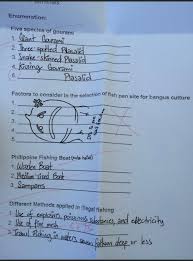 Enumeration:
Five species of gourami
1. Giant Gourami
2. Three-spotted Plasalid
3. Snake-skinned Plasalid
4. Kissing Gourami
5. Plasalid
Factors to consider in the selection of fish pen site for bangus culture
1.
2.
3.
4.
5.
Philippine Fishing Boat
1. Wooden Boat
2. Medium sized Boat
3. Sampans
Different Methods applied in illegal fishing
1. Use of explosives, poisonous substances, and electricity
2. Use of fine mesh
3. Trawl Fishing in waters seven fathom deep or less